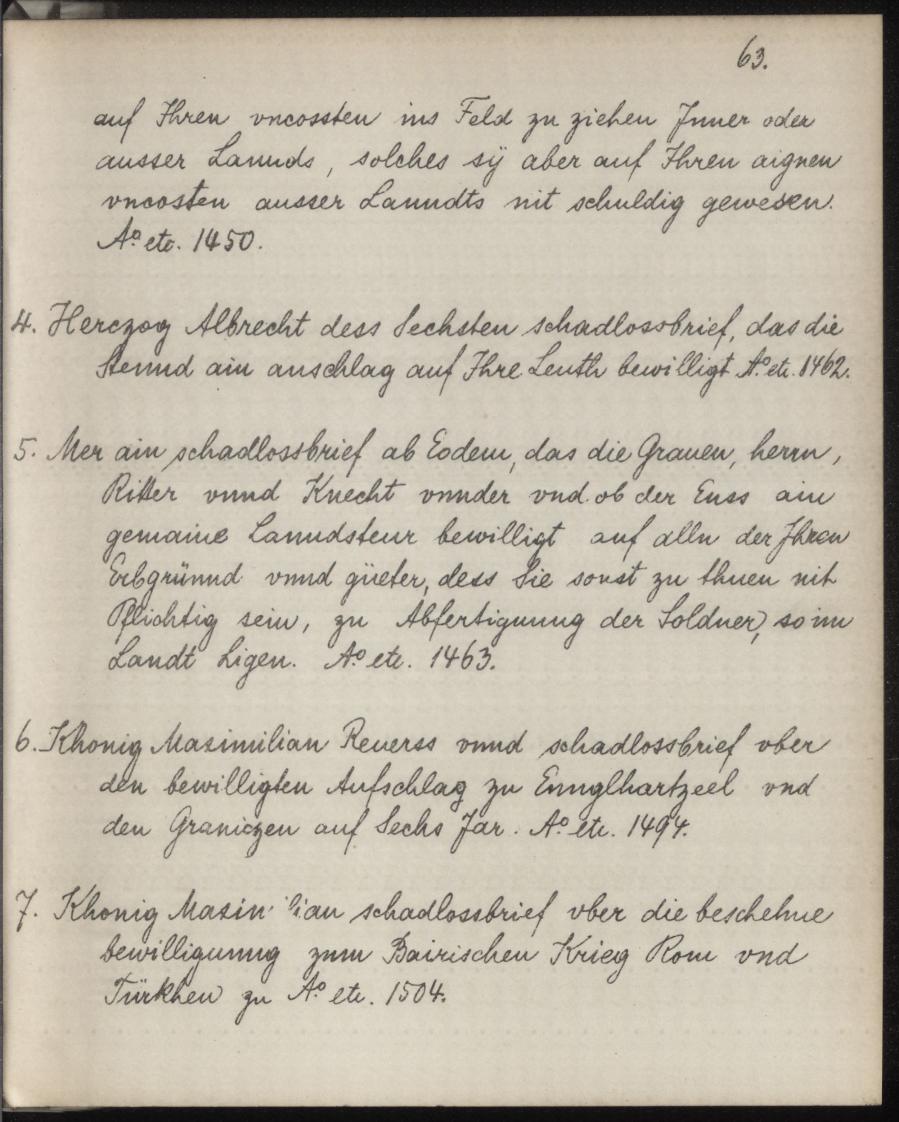 63.
auf Ihren vncossten ins Feld zu ziehen Jnner oder
ausser Lannds, solches sÿ aber auf Ihren aignen
vncosten ausser Lanndts nit schuldig gewesen.
Aº etc. 1450.
4. Herczog Albrecht dess Sechsten schadlossbrief, das die
Stennd ain anschlag auf Ihre Leuth bewilligt Aº etc. 1462.
5. Mer ain schadlossbrief ab Eodem, das die Grauen, herrn,
Ritter vnnd Knecht vnnder vnd ob der Enss ain
gemaine Lanndsteur bewilligt auf alln der Jhren
Erbgrünnd vnnd güeter, dess Sie sonst zu thuen nit
Pflichtig sein, zu Abfertigunng der Soldner, so im
Landt Ligen. Aº etc. 1463.
6. Khonig Maximilian Reuerss vnnd schadlossbrief vber
den bewilligten Aufschlag zu Ennglhartzeel vnd
den Graniczen auf Sechs Jar. Aº etc. 1494.
7. Khonig Maximilian schadlossbrief vber die beschehne
bewilligunng zum Bairischen Krieg Rom vnd
Türkhen zu Aº etc. 1504.